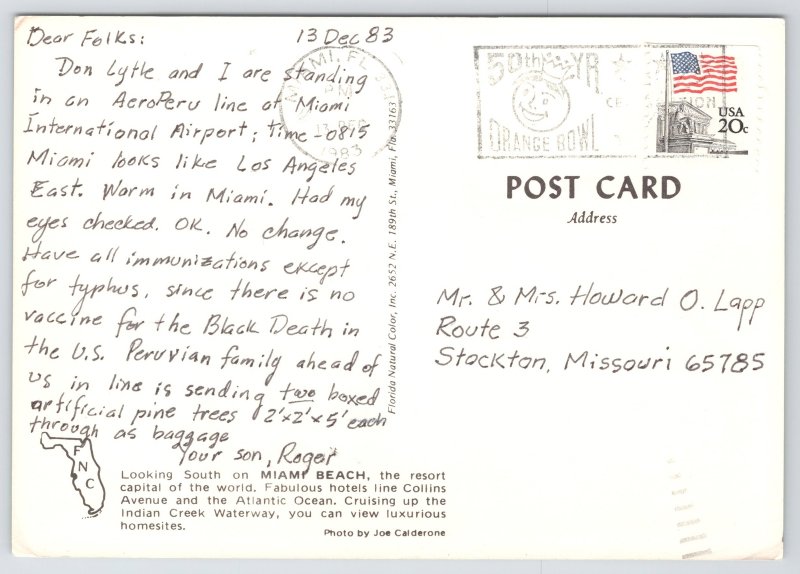 Dear Folks: 13 Dec 83
Don Lytle and I are standing
in an AeroPeru line at Miami
International Airport; time 0815
Miami looks like Los Angeles
East. Warm in Miami. Had my
eyes checked. OK. No change.
Have all immunizations except
for typhus, since there is no
vaccine for the Black Death in
the U.S. Peruvian family ahead of
us in line is sending two boxed
artificial pine trees 2'x2'x5' each
through as baggage
Your son, Roger
FNC
Looking South on MIAMI BEACH, the resort
capital of the world. Fabulous hotels line Collins
Avenue and the Atlantic Ocean. Cruising up the
Indian Creek Waterway, you can view luxurious
homesites.
Photo by Joe Calderone
Florida Natural Color, Inc. 2652 N.E. 189th St., Miami, Fla 33163
MIAMI, FL 331
PM
13 DEC
1983
50th YR
ORANGE BOWL
USA
20c
POST CARD
Address
Mr. & Mrs. Howard O. Lapp
Route 3
Stockton, Missouri 65785